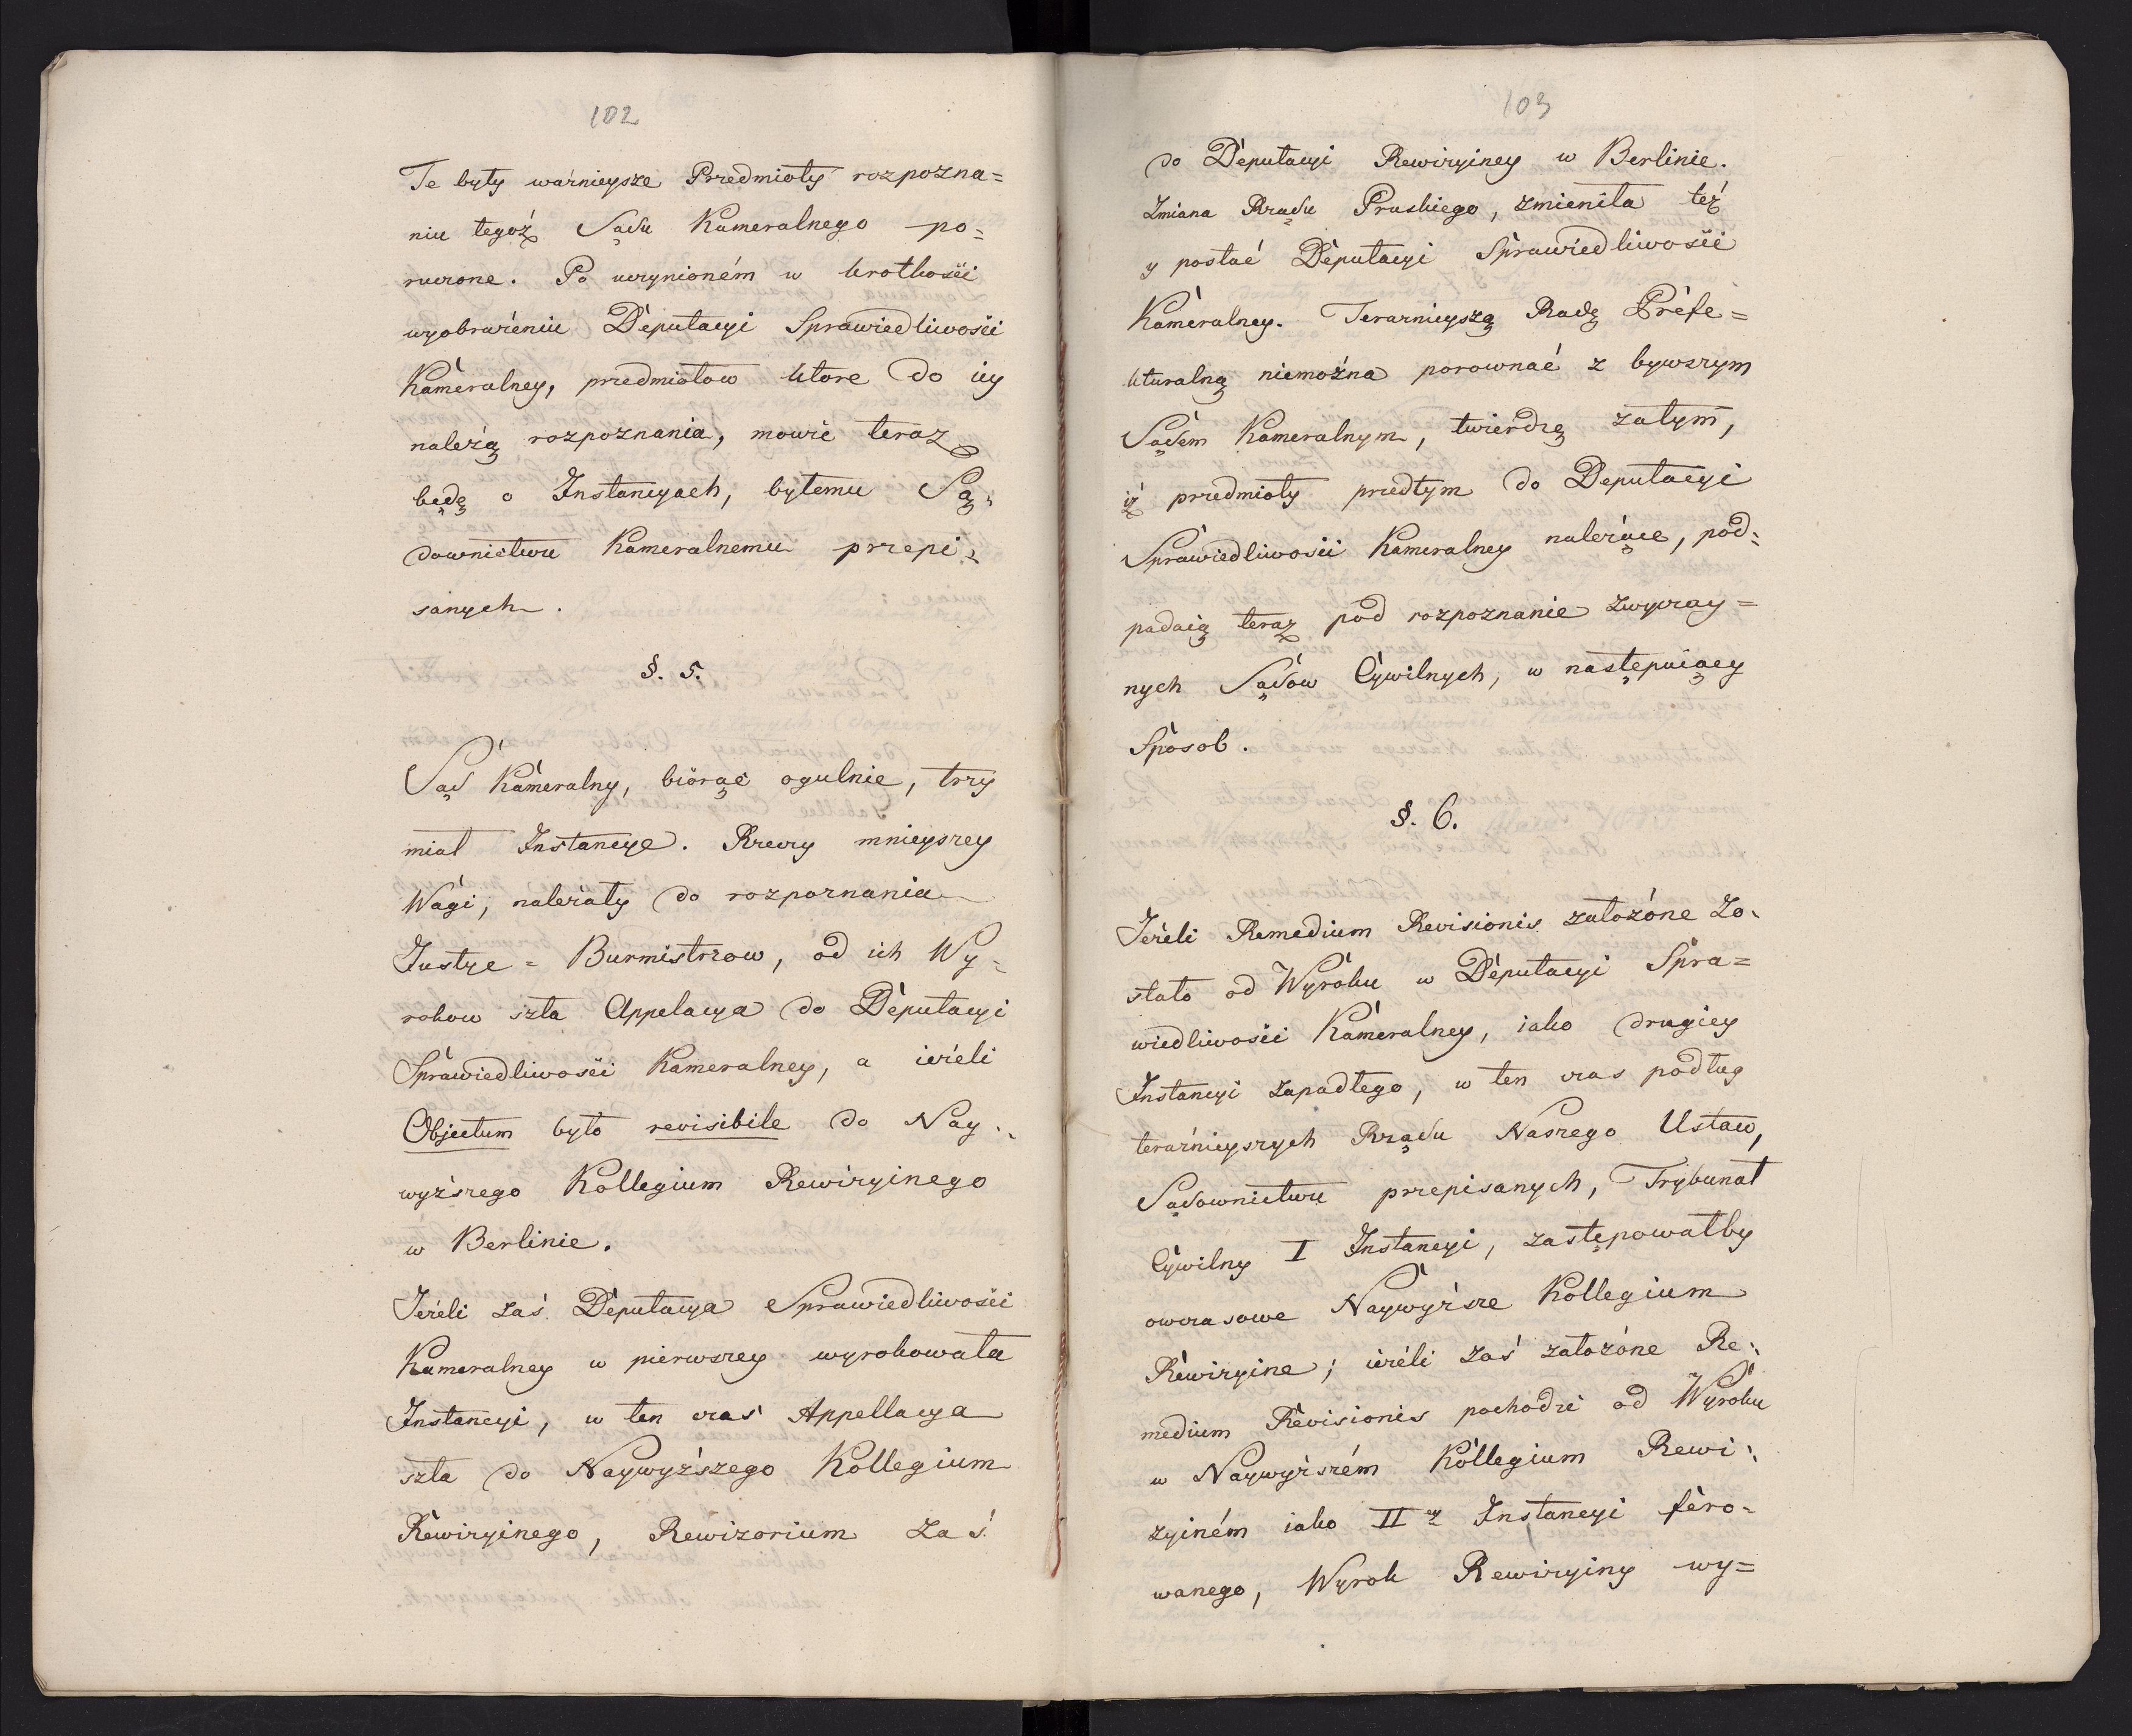 102
Te były ważnieysze Przedmioty rozpozna=
niu tegoż Sądu Kameralnego po=
ruczone. Po uczynioném w krotkości
wyobrażeniu Deputacyi Sprawiedliwości
Kameralney, przedmiotow ktore do iey
należą rozpoznania, mowić teraz
będę o Instancyach, bytemu Są=
downictwu Kameralnemu przepi=
sanych.
§. 5.
Sąd Kameralny, biorąc ogulnie, trzy
miał Instancye. Rzeczy mnieyszey
Wagi, należały do rozpoznania
Justyc = Burmistrzow, od ich Wy=
rokow szła Appelacya do Deputacyi
Sprawiedliwości Kameralney, a ieżeli
Objectum było revisibile do Nay=
wyższego Kollegium Rewizyinego
w Berlinie.
Jeżeli zaś Deputacya Sprawiedliwości
Kameralney w pierwszey wyrokowała
Instancyi, w ten czas Appellacya
szła do Naywyższego Kollegium
Rewizyinego, Rewizorium zaś
103
do Deputacyi Rewizyiney w Berlinie.
Zmiana Rządu Pruskiego, zmieniła też
y postać Deputacyi Sprawiedliwości
Kameralney. Teraznieyszą Radę Prefe=
kturalną niemożna porownać z bywszym
Sądem Kameralnym, twierdzę zatym,
iż przedmioty przedtym do Deputacyi
Sprawiedliwości Kameralney należące, pod=
padaią teraz pod rozpoznanie zwyczay=
nych Sądow Cywilnych, w następuiący
Sposob.
§. 6.
Jeżeli Remedium Revisionis założone zo=
stało od Wyroku w Deputacyi Spra=
wiedliwości Kameralney, iako drugiey
Instancyi zapadłego, w ten czas podług
teraźnieyszych Rządu Naszego Ustaw,
Sądownictwu przepisanych, Trybunał
Cywilny I Instancyi, zastępowałby
owczasowe Naywyższe Kollegium
Rewizyine; ieżeli zaś założone Re=
medium Revisionis pochodzi od Wyroku
w Naywyższém Kollegium Rewi=
zyiném iako II ey Instancyi fero=
wanego, Wyrok Rewizyiny wy=